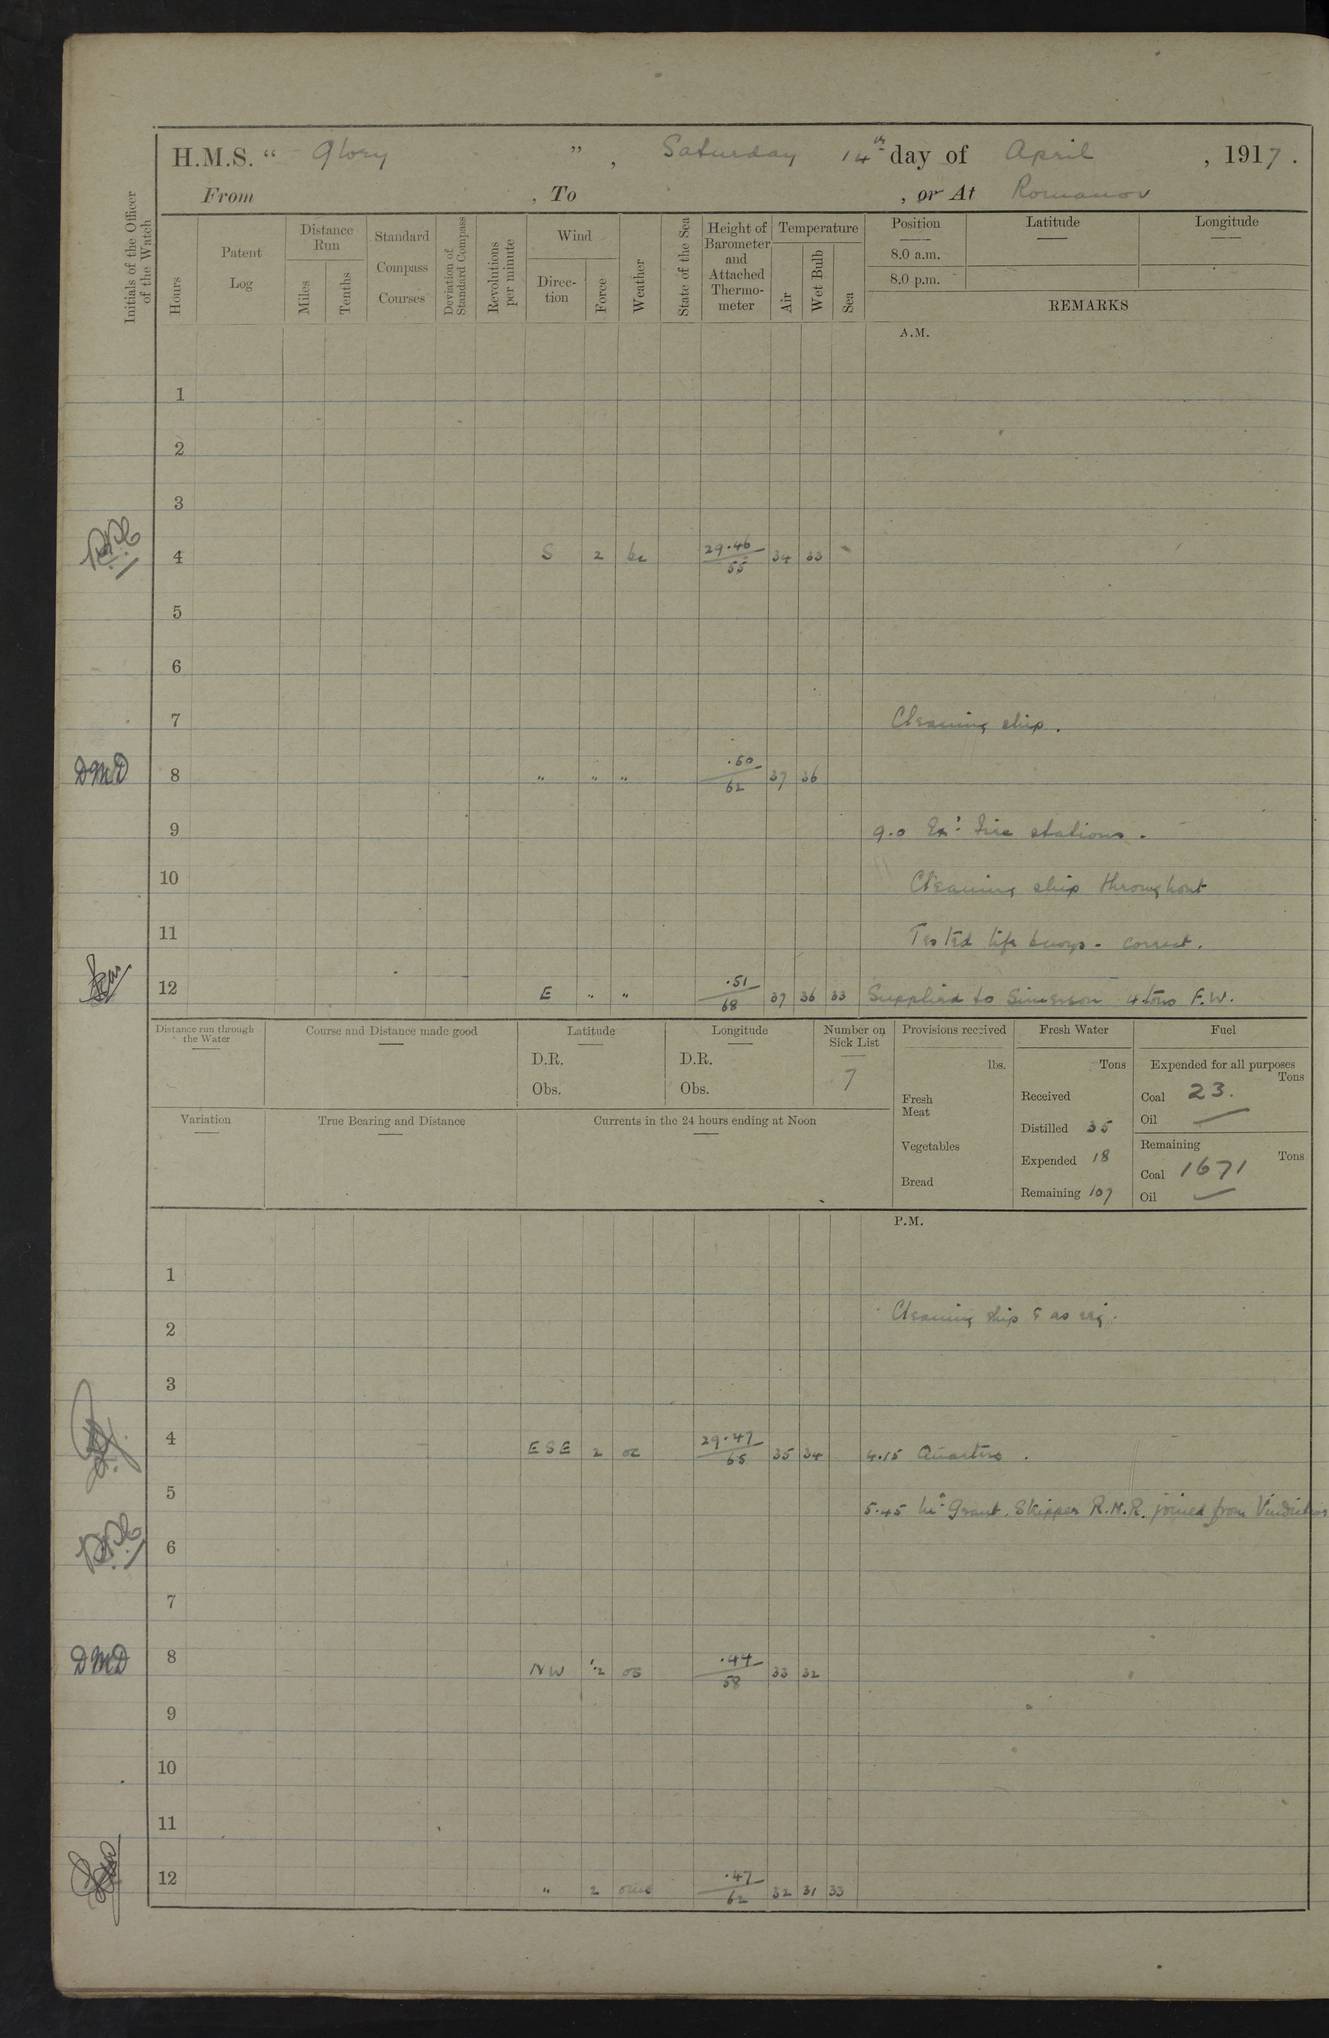 H.M.S. " Glory " , Saturday 14th day of April , 1917 .
From , To , or At Romanov
Initials of the Officer of the Watch
Hours
Patent Log
Distance Run
Miles
Tenths
Standard Compass Courses
Deviation of Standard Compass
Revolutions per minute
Wind
Direction
Force
Weather
State of the Sea
Height of Barometer and Attached Thermometer
Temperature
Air
Wet Bulb
Sea
Position Latitude Longitude
8.0 a.m.
8.0 p.m.
REMARKS
A.M.
1
2
3
4 S 2 bc 29.46 55 34 33
5
6
7 Cleaning ship.
DMD 8 " " " .50 62 37 36
9 9.0 Exd Fire stations.
10 Cleaning ship throughout
11 Tested life buoys - correct.
12 E " " .51 68 37 36 33 Supplied to 4 tons F.W.
Distance run through the Water
Course and Distance made good
Latitude
D.R.
Obs.
Longitude
D.R.
Obs.
Number on Sick List
7
Provisions received
lbs.
Fresh Meat
Vegetables
Bread
Fresh Water
Tons
Received
Distilled 35
Expended 18
Remaining 107
Fuel
Expended for all purposes
Tons
Coal 23.
Oil —
Remaining
Tons
Coal 1671
Oil —
Variation
True Bearing and Distance
Currents in the 24 hours ending at Noon
P.M.
1
2 Cleaning ship & as req.
3
4 ESE 2 oc 29.47 65 35 34 4.15 Quarters.
5 5.45 Mr Grant, Skipper R.N.R. joined from Vindictive
6
7
DMD 8 NW 1.2 os .44 58 33 32
9
10
11
12 " 2 .47 62 32 31 33